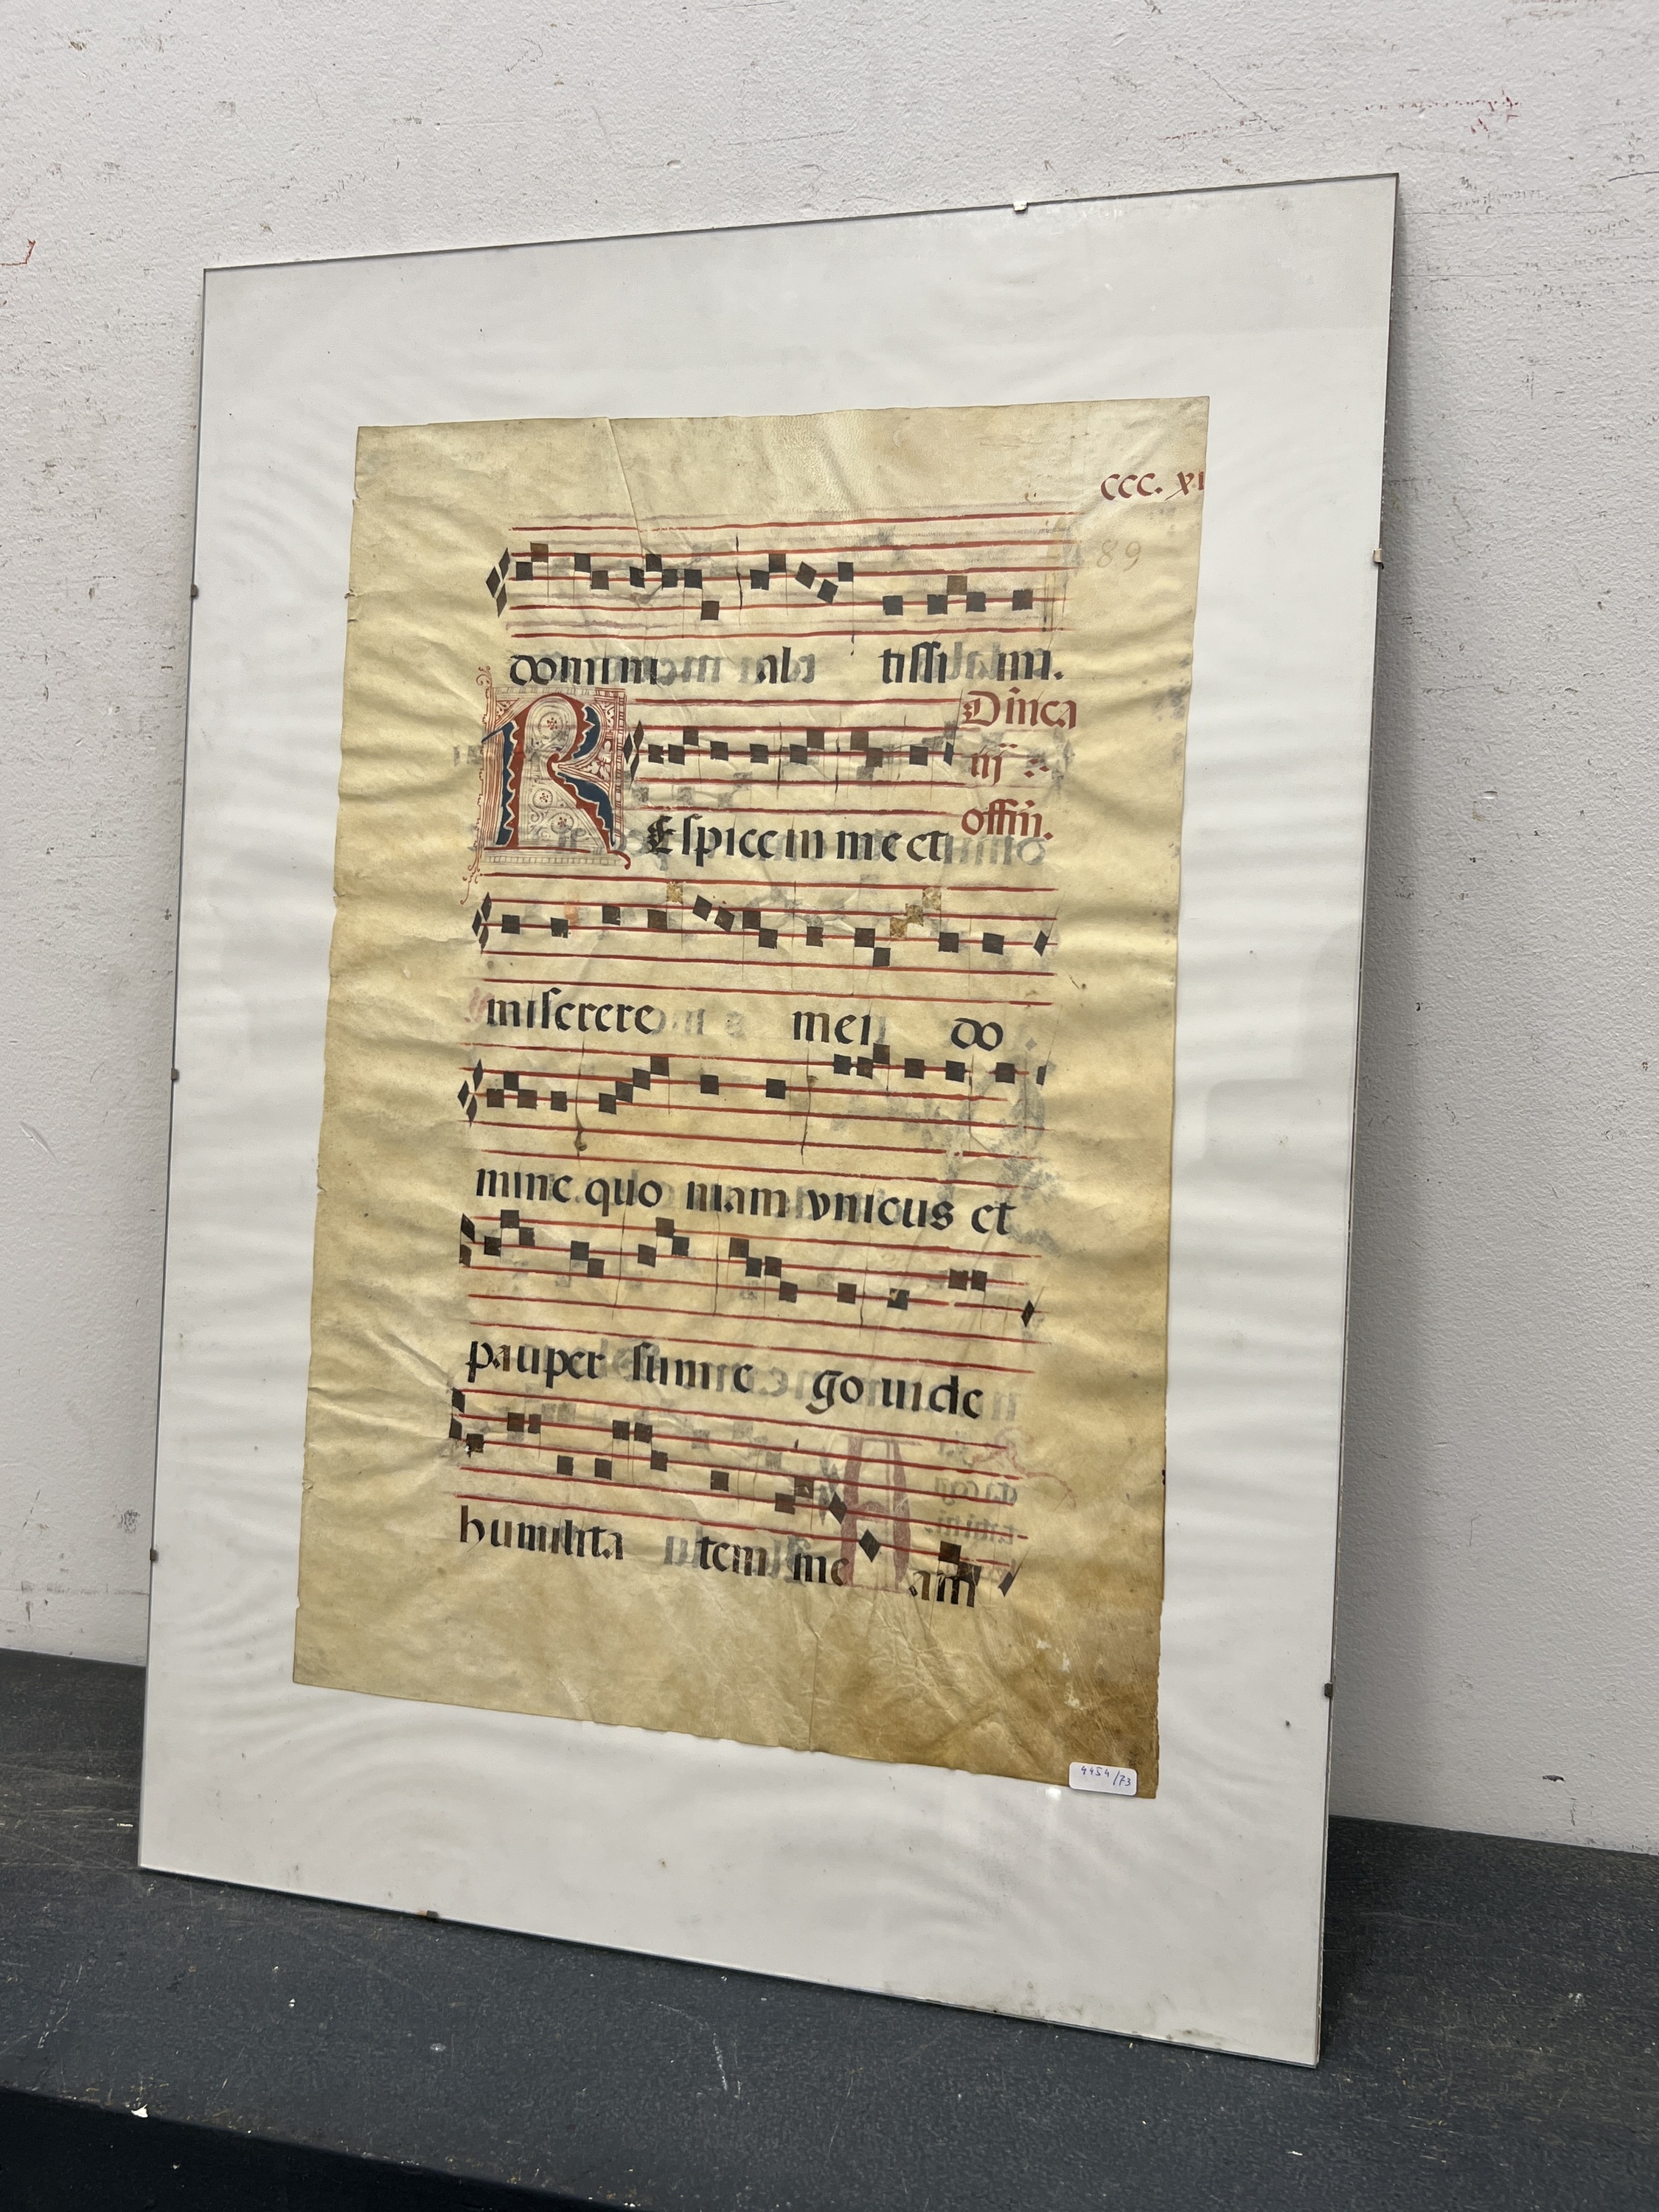 CCC. XI
89
domini alt tissi mi.
Dnica
iij
offm.
REspice in me et
miserere mei do
mine quo niam vnicus et
pauper sum e go vide
humilita tem me am
4454/73